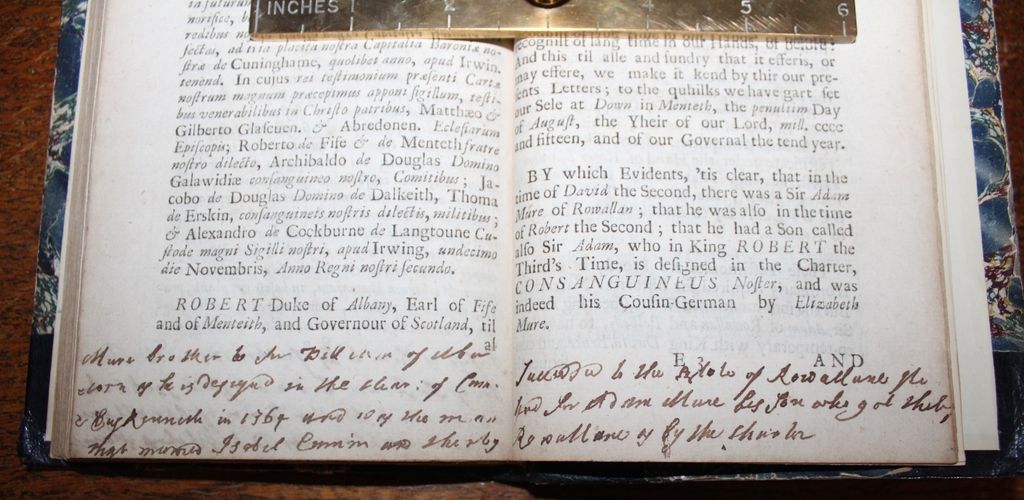 INCHES 1 2 5 6
norifice,
redibus
fectas, ad illa placita nostra Capitalia Baroniæ no-
stræ de Cuninghame, quolibet anno, apud Irwin.
tenend. In cujus rei testimonium præsenti Cartæ
nostrum magnum præcepimus apponi sigillum, testi-
bus venerabilibus in Christo patribus, Matthæo &
Gilberto Glascuen. & Abredonen. Eclesiarum
Episcopis; Roberto de Fife & de Menteth fratre
nostro dilecto, Archibaldo de Douglas Domino
Galawidiæ consanguineo nostro, Comitibus; Ja-
cobo de Douglas Domino de Dalkeith, Thoma
de Erskin, consanguineis nostris dilectis, militibus;
& Alexandro de Cockburne de Langtoune Cu-
stode magni Sigilli nostri, apud Irwing, undecimo
die Novembris, Anno Regni nostri secundo.
ROBERT Duke of Albany, Earl of Fife
and of Menteith, and Governour of Scotland, til
al
Mure brother to Sir William of Aber
corn as he is designed in the Char: of Cam-
Buskenneth in 1367 and was the man
that married Isobel Cumin and therby
recognist of lang time in our Hands, or before:
And this til alle and sundry that it efferis, or
may effere, we make it kend by thir our pre-
sents Letters; to the quhilks we have gart set
our Sele at Down in Menteth, the penultim Day
of August, the Yheir of our Lord, mill. cccc
and fifteen, and of our Governal the tend year.
BY which Evidents, 'tis clear, that in the
time of David the Second, there was a Sir Adam
Mure of Rowallan; that he was also in the time
of Robert the Second; that he had a Son called
also Sir Adam, who in King ROBERT the
Third's Time, is designed in the Charter,
CONSANGUINEUS Noster, and was
indeed his Cousin-German by Elizabeth
Mure.
E 3 AND
Succeeded to the Estate of Rowallane He
had Sir Adam Mure his Son who got the
Rowallane as by the Charter